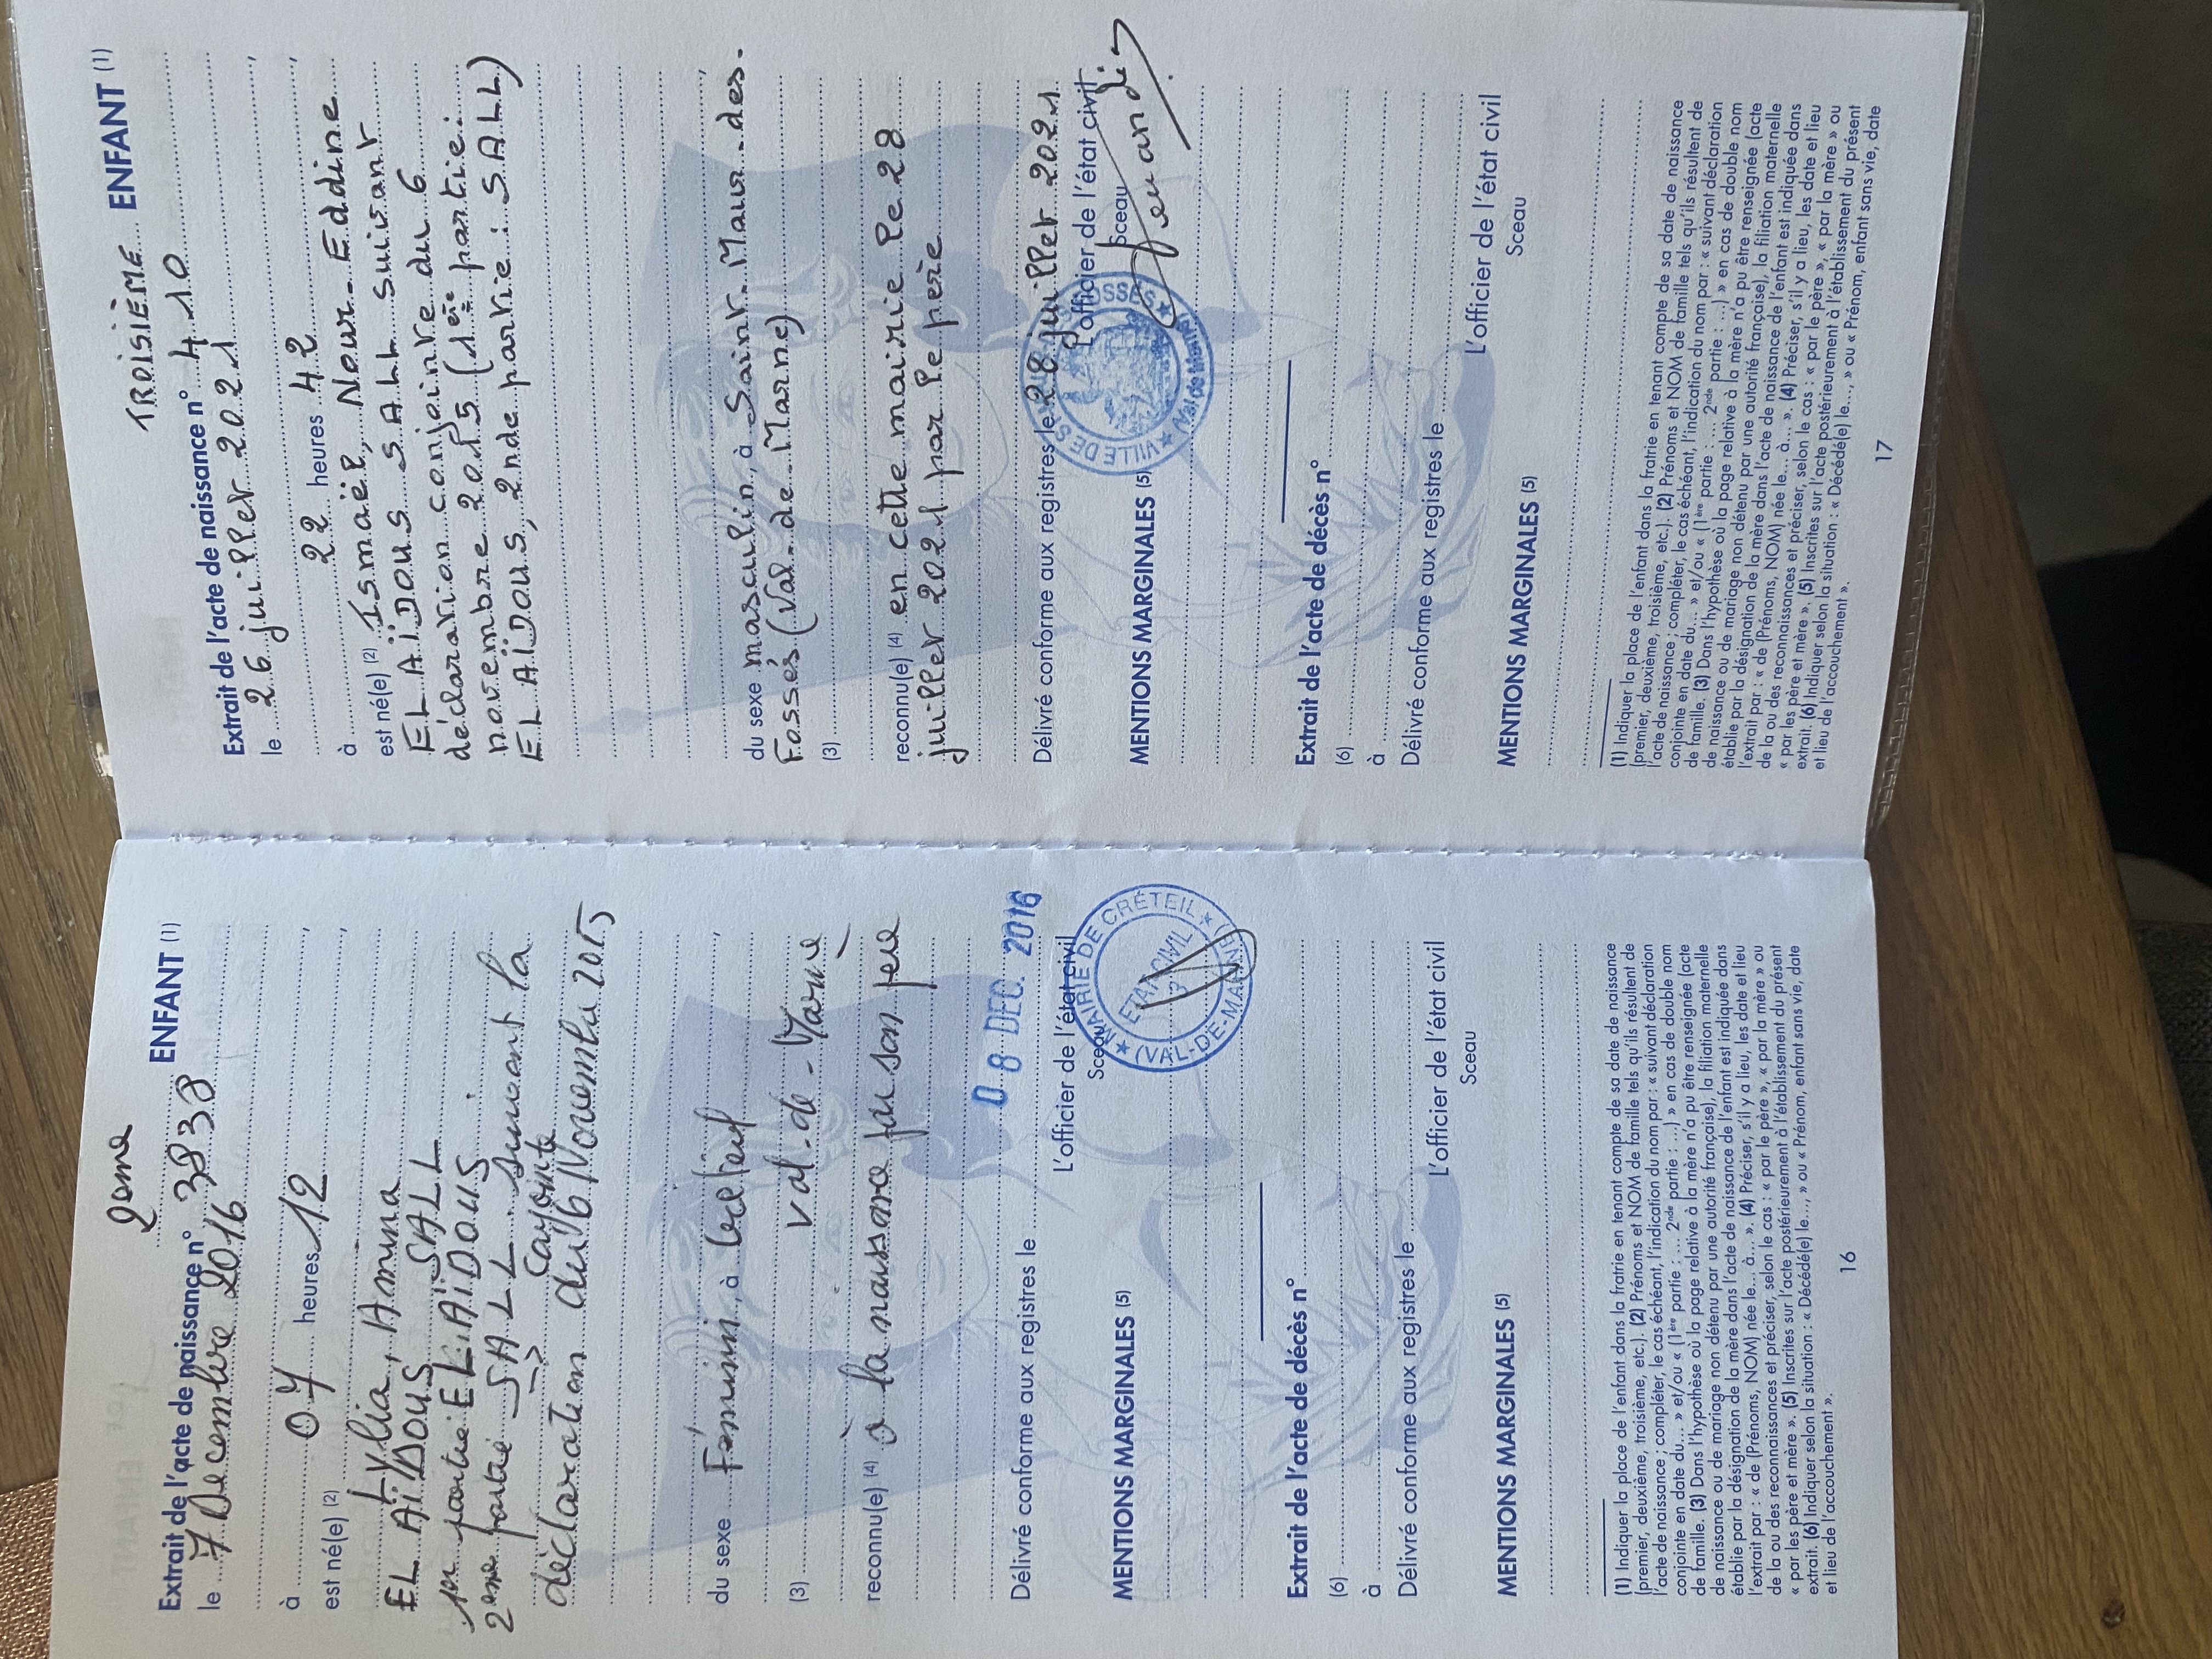 2eme ENFANT (1)
Extrait de l'acte de naissance n° 3838
le 7 Decembre 2016
à 07 heures 12
est né(e) (2)
Lylia, Amina
EL AïDOUS SALL
1er partie EL AïDOUS
2eme partie SALL suivant la
conjointe
déclaration du 6 Novembre 2015
du sexe Féminin, à Créteil
(3) Val-de-Marne
reconnu(e) (4) à la naissance par son père
Délivré conforme aux registres le 08 DEC. 2016
L'officier de l'état civil
Sceau
MAIRIE DE CRÉTEIL
ETAT CIVIL
3
(VAL-DE-MARNE)
MENTIONS MARGINALES (5)
Extrait de l'acte de décès n°
(6)
à
Délivré conforme aux registres le
L'officier de l'état civil
Sceau
MENTIONS MARGINALES (5)
(1) Indiquer la place de l'enfant dans la fratrie en tenant compte de sa date de naissance
(premier, deuxième, troisième, etc.). (2) Prénoms et NOM de famille tels qu'ils résultent de
l'acte de naissance ; compléter, le cas échéant, l'indication du nom par : « suivant déclaration
conjointe en date du... » et/ou « (1ère partie : ... 2nde partie : ...) » en cas de double nom
de famille. (3) Dans l'hypothèse où la page relative à la mère n'a pu être renseignée (acte
de naissance ou de mariage non détenu par une autorité française), la filiation maternelle
établie par la désignation de la mère dans l'acte de naissance de l'enfant est indiquée dans
l'extrait par : « de (Prénoms, NOM) née le... à... ». (4) Préciser, s'il y a lieu, les date et lieu
de la ou des reconnaissances et préciser, selon le cas : « par le père », « par la mère » ou
« par les père et mère ». (5) Inscrites sur l'acte postérieurement à l'établissement du présent
extrait. (6) Indiquer selon la situation : « Décédé(e) le..., » ou « Prénom, enfant sans vie, date
et lieu de l'accouchement ».
16
TROISIÈME ENFANT (1)
Extrait de l'acte de naissance n° 410
le 26 juillet 2021
à 22 heures 42
est né(e) (2) Ismaël, Nour-Eddine
EL AÏDOUS SALL suivant
déclaration conjointe du 6
novembre 2015 (1ère partie :
EL AÏDOUS, 2nde partie : SALL)
du sexe masculin, à Saint-Maur-des-
Fossés (Val-de-Marne)
(3)
reconnu(e) (4) en cette mairie le 28
juillet 2021 par le père
Délivré conforme aux registres le 28 juillet 2021
L'officier de l'état civil
Sceau
MENTIONS MARGINALES (5)
Extrait de l'acte de décès n°
(6)
à
Délivré conforme aux registres le
L'officier de l'état civil
Sceau
MENTIONS MARGINALES (5)
(1) Indiquer la place de l'enfant dans la fratrie en tenant compte de sa date de naissance
(premier, deuxième, troisième, etc.). (2) Prénoms et NOM de famille tels qu'ils résultent de
l'acte de naissance ; compléter, le cas échéant, l'indication du nom par : « suivant déclaration
conjointe en date du... » et/ou « (1ère partie : ... 2nde partie : ...) » en cas de double nom
de famille. (3) Dans l'hypothèse où la page relative à la mère n'a pu être renseignée (acte
de naissance ou de mariage non détenu par une autorité française), la filiation maternelle
établie par la désignation de la mère dans l'acte de naissance de l'enfant est indiquée dans
l'extrait par : « de (Prénoms, NOM) née le... à... ». (4) Préciser, s'il y a lieu, les date et lieu
de la ou des reconnaissances et préciser, selon le cas : « par le père », « par la mère » ou
« par les père et mère ». (5) Inscrites sur l'acte postérieurement à l'établissement du présent
extrait. (6) Indiquer selon la situation : « Décédé(e) le..., » ou « Prénom, enfant sans vie, date
et lieu de l'accouchement ».
17